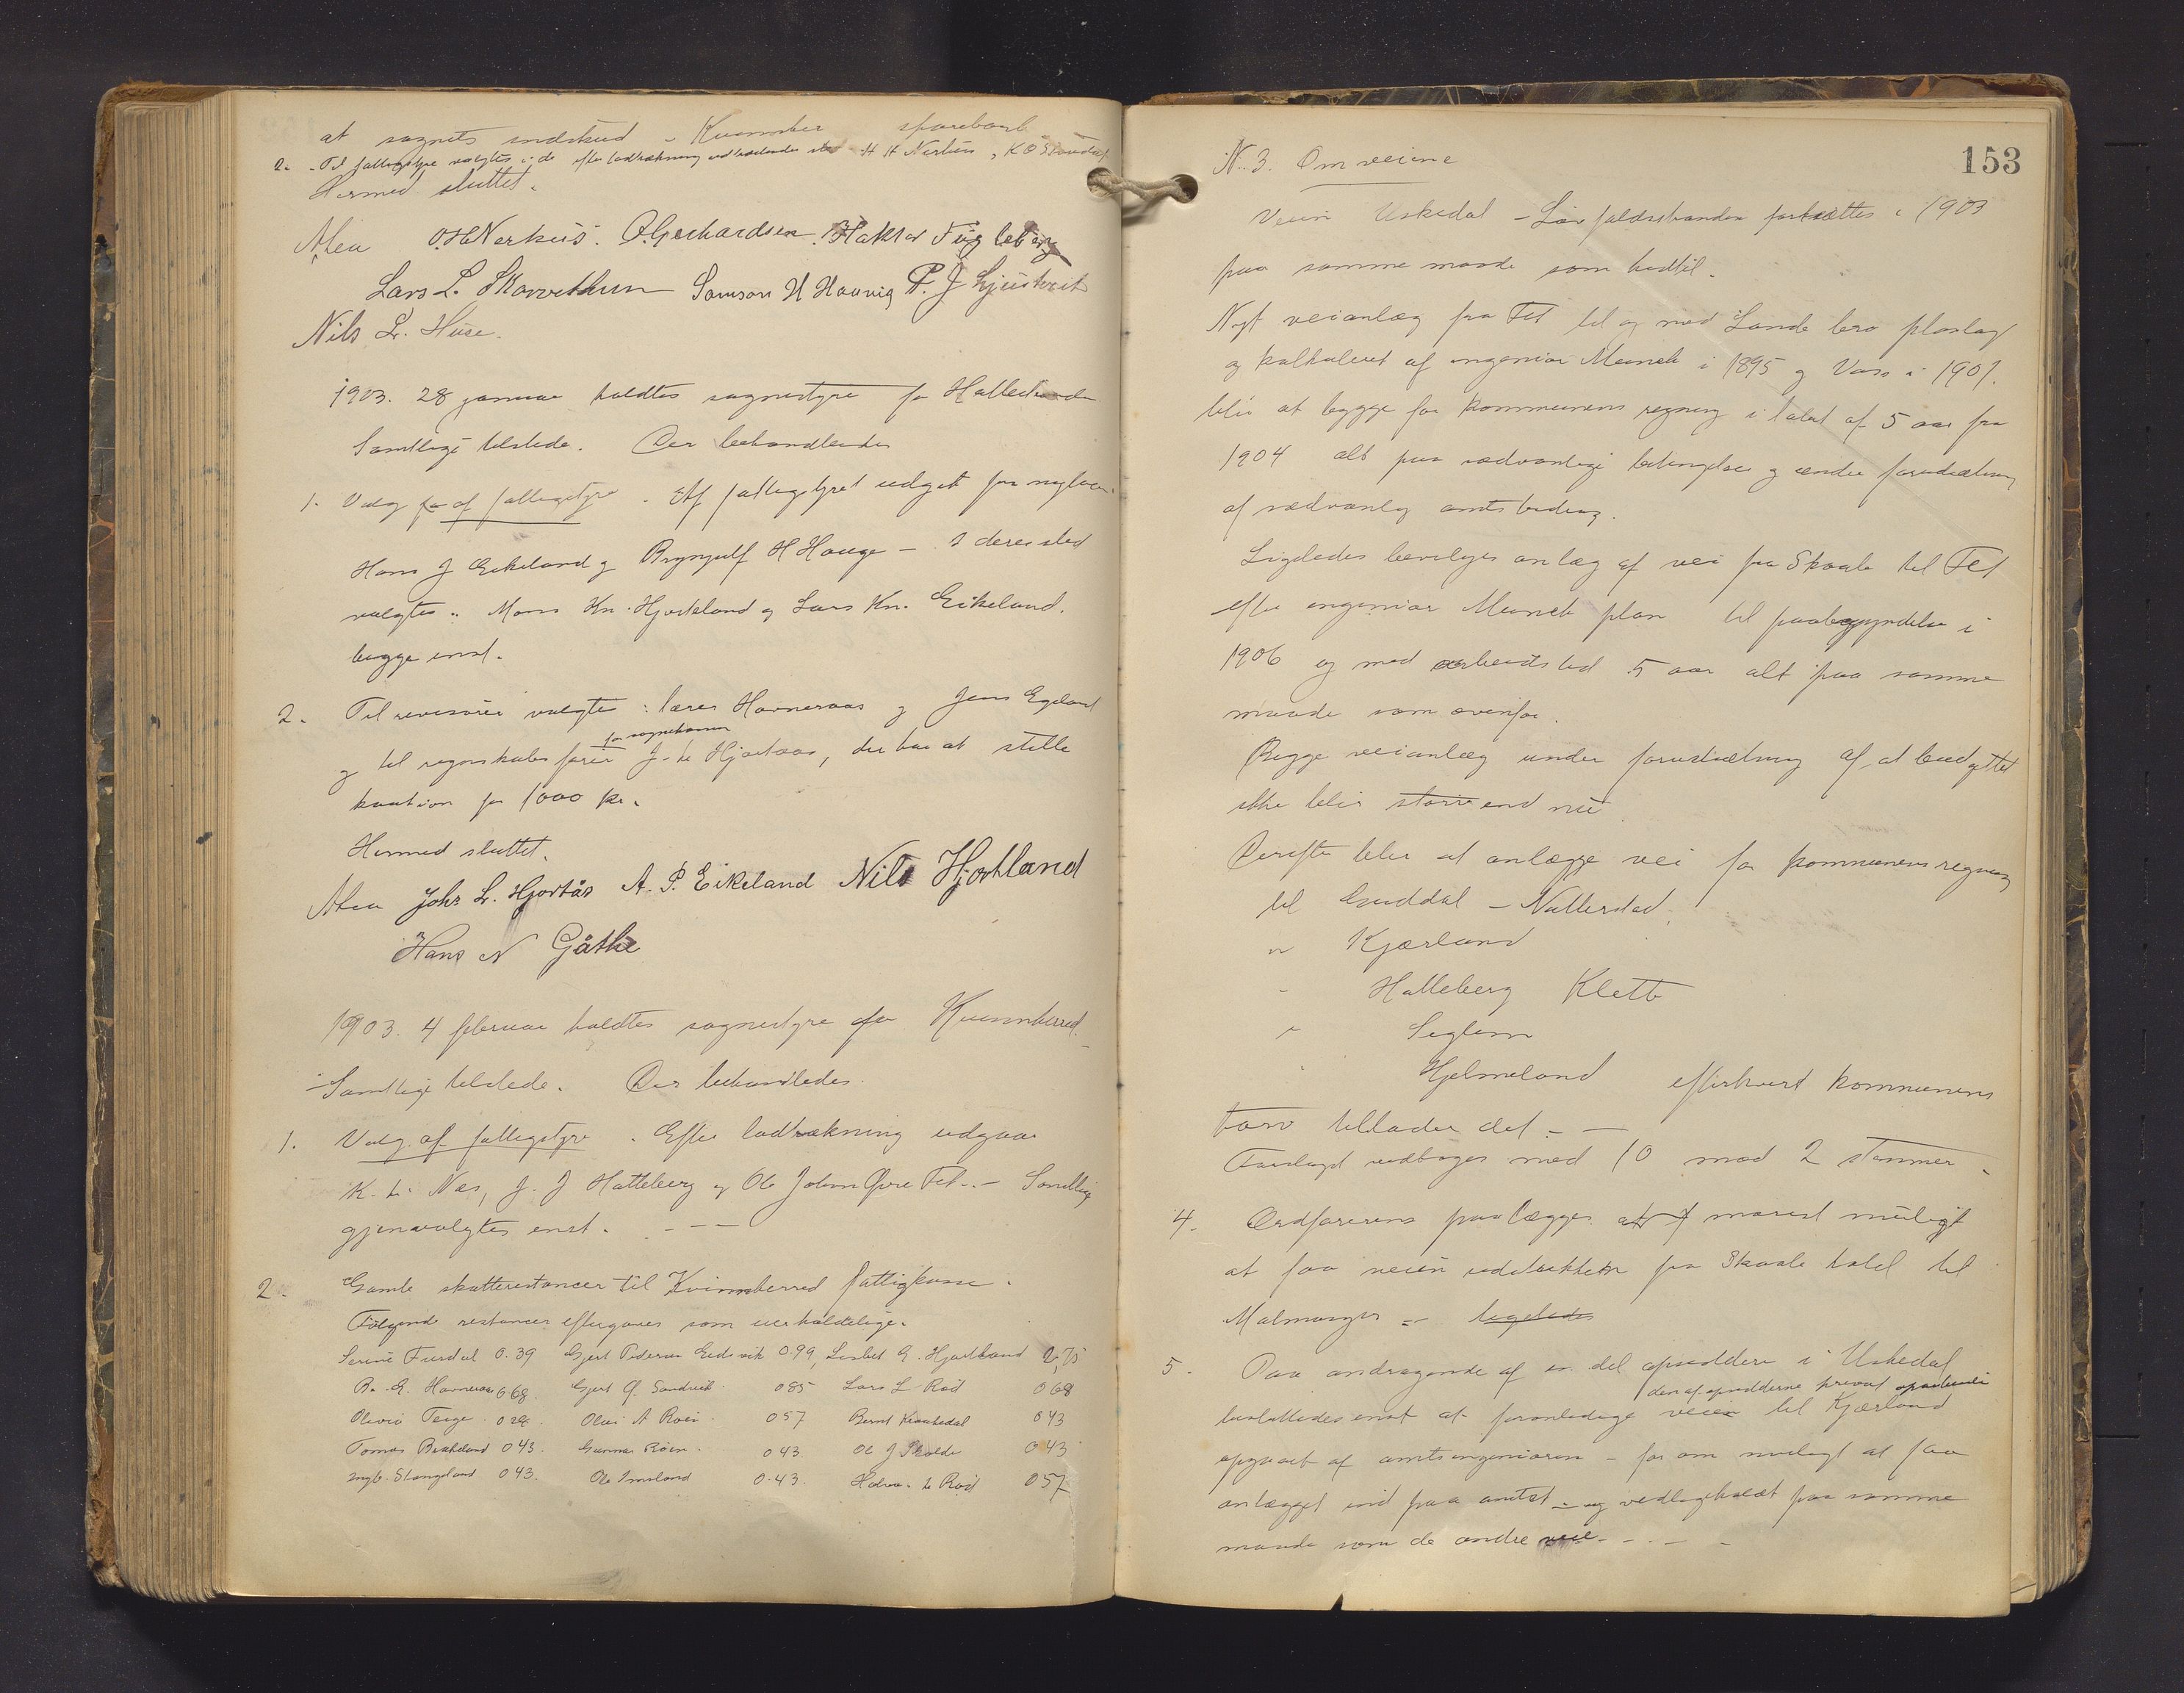 at sognets indskud i Kvinnher sparebank
2. Til fattigstyre valgtes i de efter lodtrækning udtrædendes sted H H Nerhus, K O Sundal
Hermed sluttet.
Alen O.H Nerhus. O. Gerhardsen. Haktor Fugleberg
Lars L. Skorvethun Samson H Haavig P. J Ljustveit
Nils L. Huse.
1903. 28 januar holdtes sognestyre for Hatlestranden
Samtlige tilstede. Der behandledes
1. Valg af fattigstyre. Af fattigstyret udgik for nylaan
Hans J Eikeland og Brynjulf H Hauge – I deres sted
valgtes: Mons Kn. Hjorteland og Lars Kn. Eikeland.
begge enst.
2. Til revisorer valgtes: lærer Havneraas og Jens Egeland
for sognekassen
og til regnskabsfører J. L. Hjortaas, der har at stille
kaution for 1000 kr.
Hermed sluttet.
Alen Johs L. Hjortås A. P. Eikeland Nils Hjortland
Hans N Gåthe
1903. 4 februar holdtes sognestyre for Kvinnherred.
Samtlige tilstede. Der behandledes.
1. Valg af fattigstyre. Efter lodtrækning udgaar
K. L. Nes, J. J Hatteberg og Ole Johan Øvre Fet. – Samtlige
gjenvalgtes enst. – – –
2. Gamle skatterestancer til Kvinnherred fattigkasse.
Følgende restancer eftergaves som uerholdelige.
Serine Furdal 0.39 Gjert Pedersen Eidsvik 0.99, Lisbet G. Hjortland 2,75
B. E. Havneraas 668. Gjert G. Sandvik 085 Lars L Rød 068
Olivia Teige 028. Olai A Røen 057 Bernt Kraakedal 043
Tomas Bækeland 043. Gunnar Røen. 043 Ole J Skolde 043
Ingb. Stangeland 043. Ole Imsland 0.43. Halvor L Rød 057
153
N. 3. Om veiene
Veien Uskedal – Løvfaldsstranden fortsættes i 1903
paa samme maade som hidtil.
Nyt veianlæg fra Fet til og med Sande bro planlagt
og kalkuleret af ingeniør Munch i 1895 og Vass i 1901.
blir at bygge for kommunens regning i løbet af 5 aar fra
1904 alt paa sædvanlige betingelser og under forudsætning
af sædvanlig amtsbidrag.
Ligeledes bevilges anlæg af vei fra Skaala til Fet
efter ingeniør Munch plan til paabegyndelse i
1906 og med arbeidstid 5 aar alt paa samme
maade som ovenfor.
Begge veianlæg under forudsætning af at budgettet
ikke blir større end nu.
Derefter blir at anlægge vei for kommunens regning
til Guddal – Natterstad
" Kjærland
" Hatleberg Klette
" Seglem
" Hjelmeland efterhvert kommunens
tarv tillader det. –
Forslaget vedtoges med 10 mod 2 stemmer.
4. Ordføreren paalægges at snarest muligt
at faa veien udstukken fra Skaala hotel til
Malmanger – ligeledes
5. Paa andragende af en del opsiddere i Uskedal
den af opsidderne privat oparbeide
besluttedes enst at foranledige veien til Kjærland
opgaaet af amtsingeniøren – for om muligt at faa
anlægget ind paa amtet – og vedligeholdt paa samme
maade som de andre veie – – – –